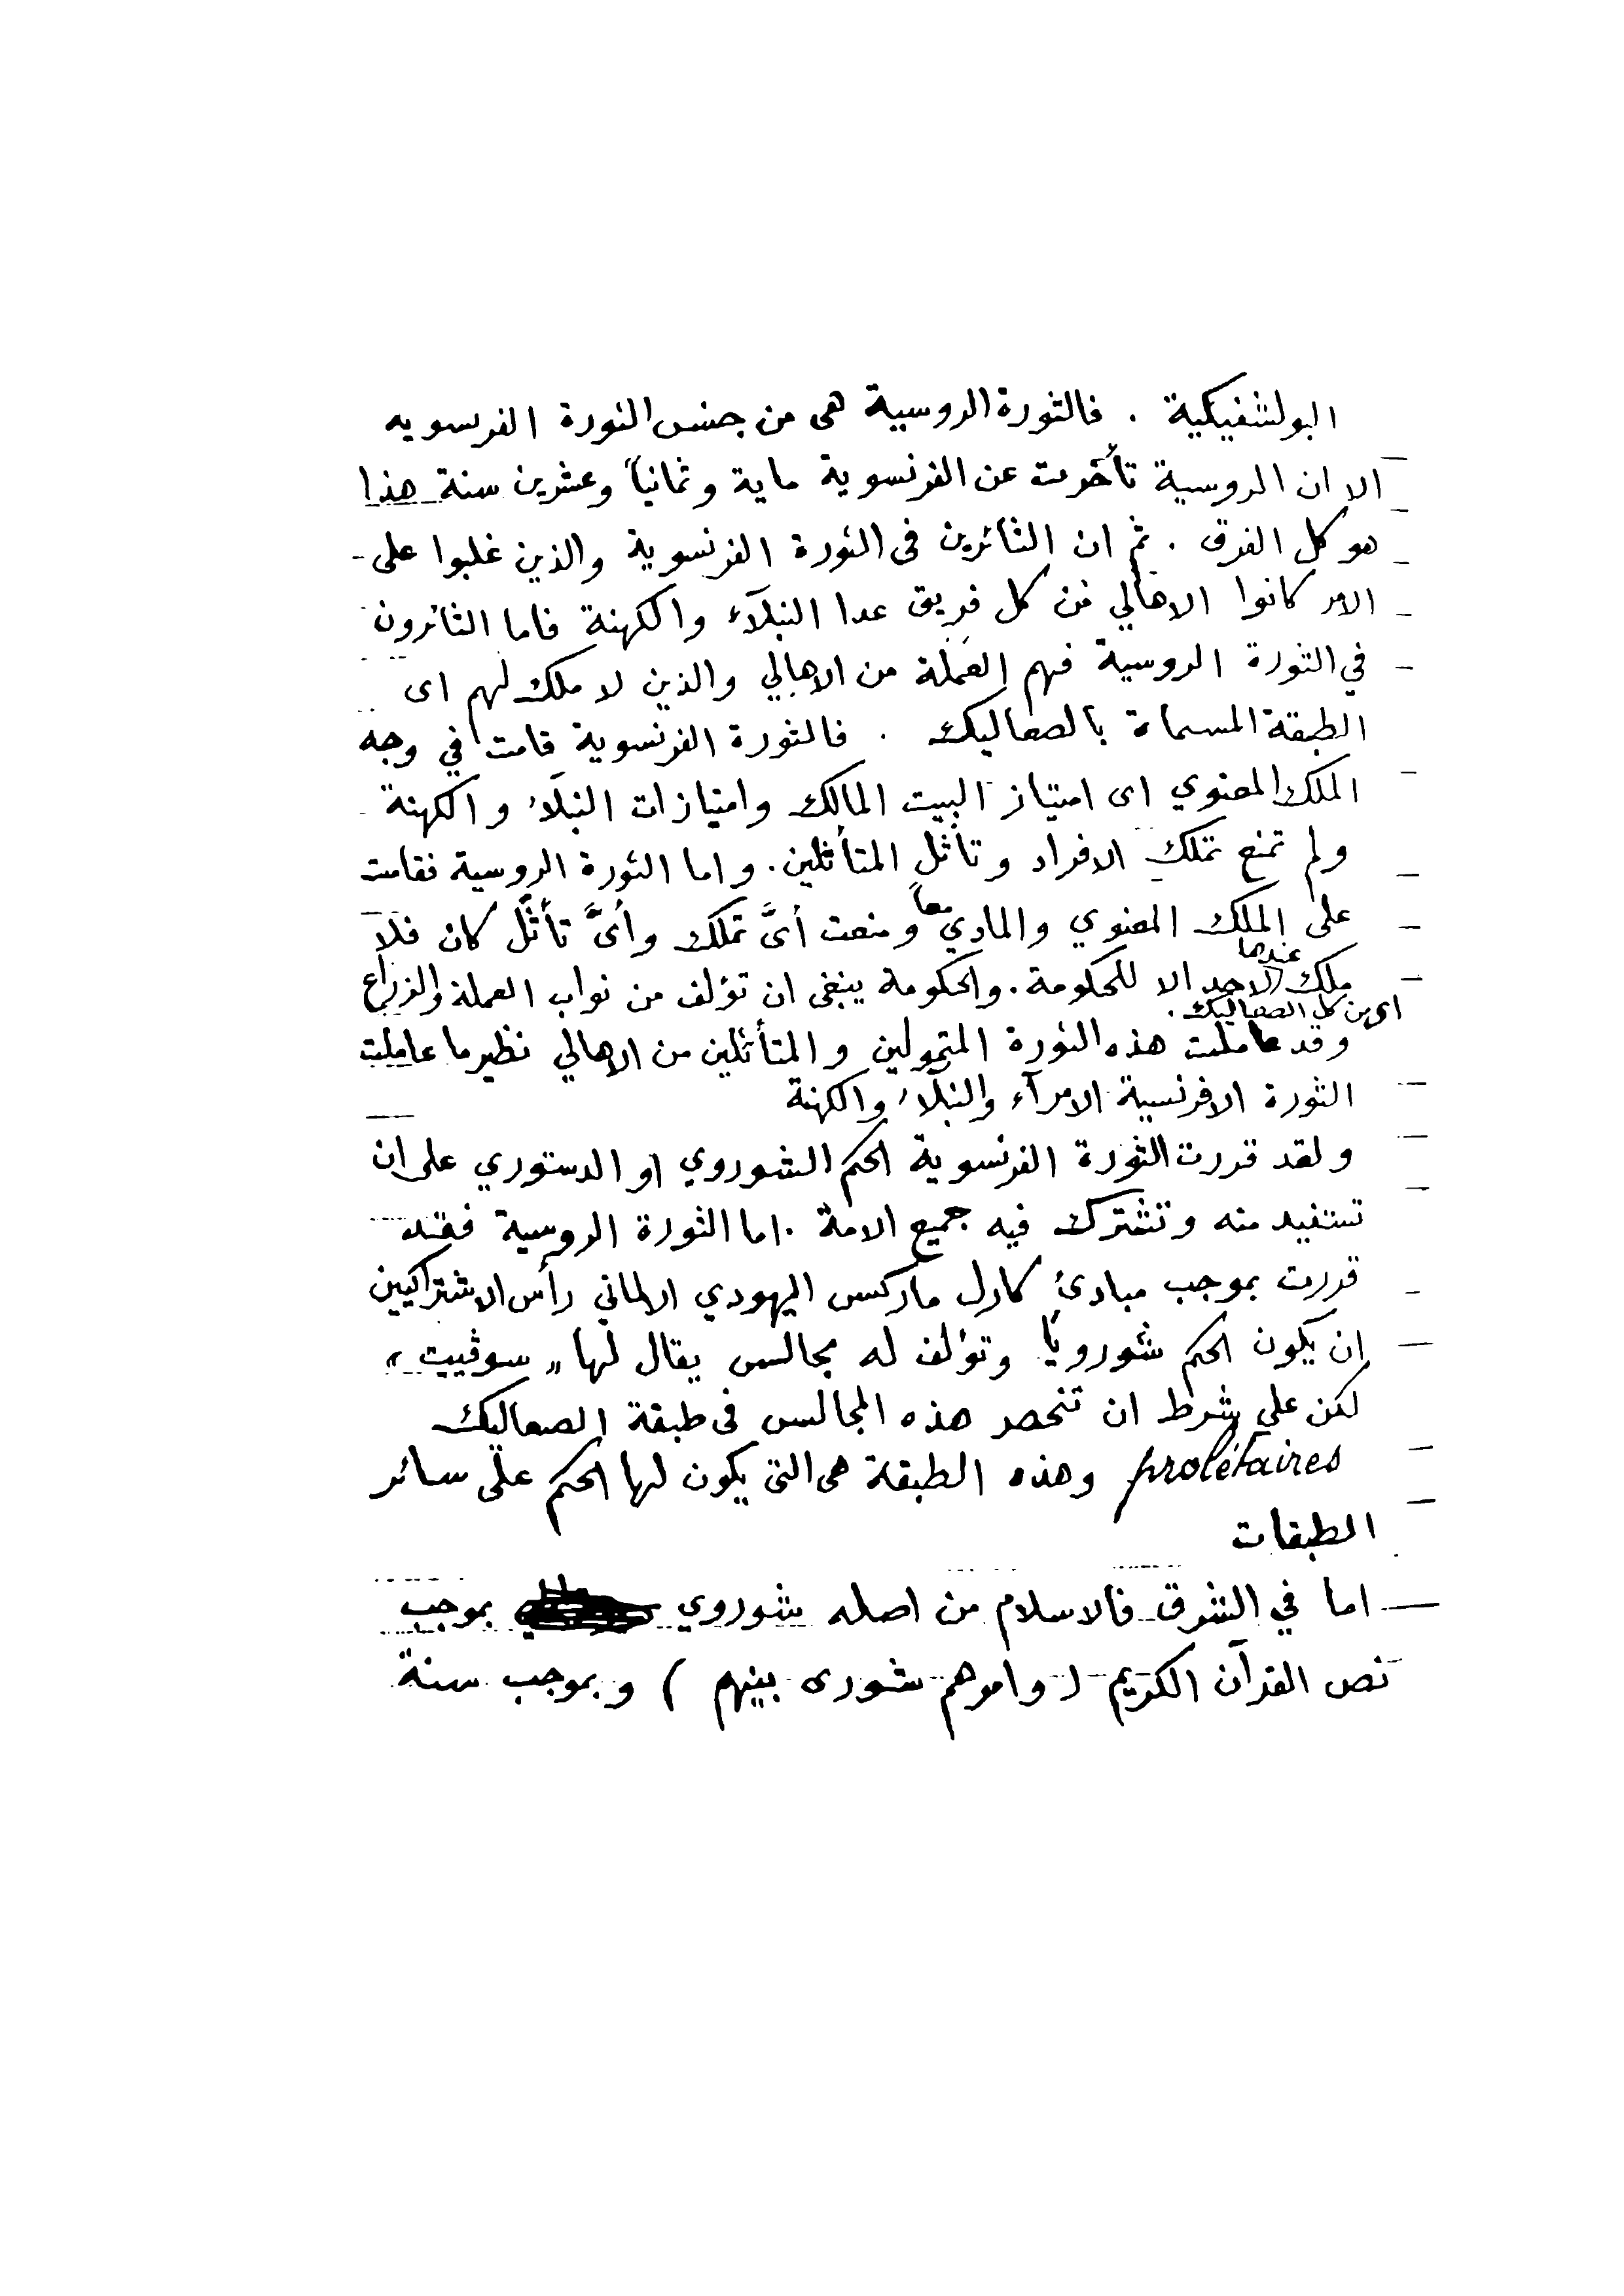 البولشفيكية . فالثورة الروسية هى من جنس الثورة الفرنسويه
الا ان الروسية تأخرت عن الفرنسوية ماية وثمانياً وعشرين سنة هذا
هو كل الفرق . ثم ان الثائرين فى الثورة الفرنسوية والذين غلبوا على
الامر كانوا الاهالي من كل فريق عدا النبلآء والكهنة فاما الثائرون
في الثورة الروسية فهم العَمَلة من الاهالي والذين لا ملك لهم اى
الطبقة المسماة بالصعاليك . فالثورة الفرنسوية قامت في وجه
الملك المعنوي اى امتياز البيت المالك وامتيازات النبلآء والكهنة
ولم تمنع تملك الافراد وتأثل المتأثلين . واما الثورة الروسية فقامت
على الملك المعنوي والمادي معاً ومنعت أىَّ تملك وأىَّ تأثّل كان فلا
ملك عندها لاحد الا للحكومة . والحكومة ينبغى ان تؤلف من نواب العملة والزراع
اى من كل الصعاليك .
وقد عاملت هذه الثورة المتمولين والمتأثلين من الاهالي نظير ما عاملت
الثورة الافرنسية الامرآء والنبلآء والكهنة
ولقد قررت الثورة الفرنسوية الحكم الشوروي او الدستوري على ان
تستفيد منه وتشترك فيه جميع الامة . اما الثورة الروسية فقد
قررت بموجب مبادئ كارل ماركس اليهودي الالماني رأس الاشتراكيين
ان يكون الحكم شورويًا وتؤلف له مجالس يقال لها „ سوڤييت „
لكن علي شرط ان تنحصر هذه المجالس فى طبقة الصعاليك
prolétaires وهذه الطبقة هى التى يكون لها الحكم على سائر
الطبقات
اما في الشرق فالاسلام من اصله شوروي بموجب
نص القرآن الكريم ( وامرهم شورى بينهم ) وبموجب سنة